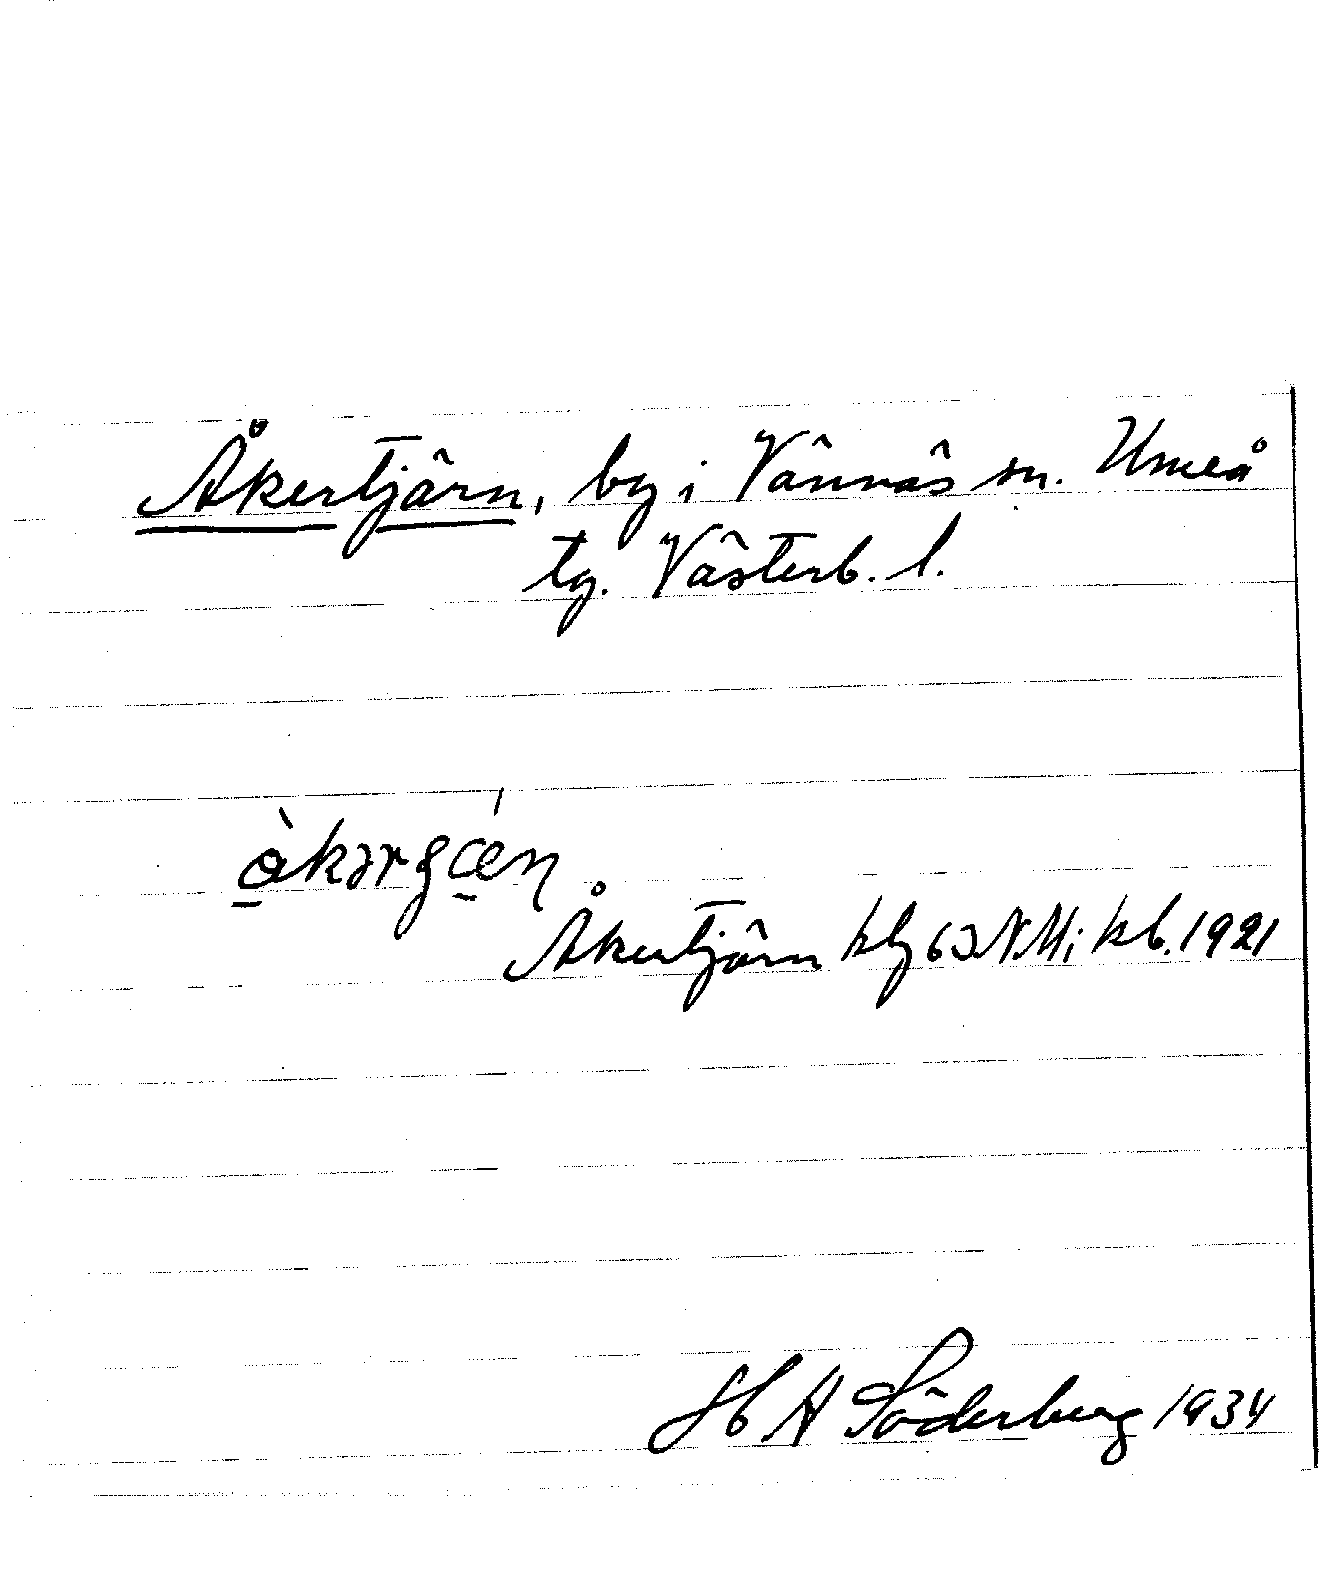 Åkertjärn, by i Vännäs sn. Umeå
tg. Västerb. l.
Åkertjärn blg 63 N.M; kb. 1921
H A Söderberg 1934